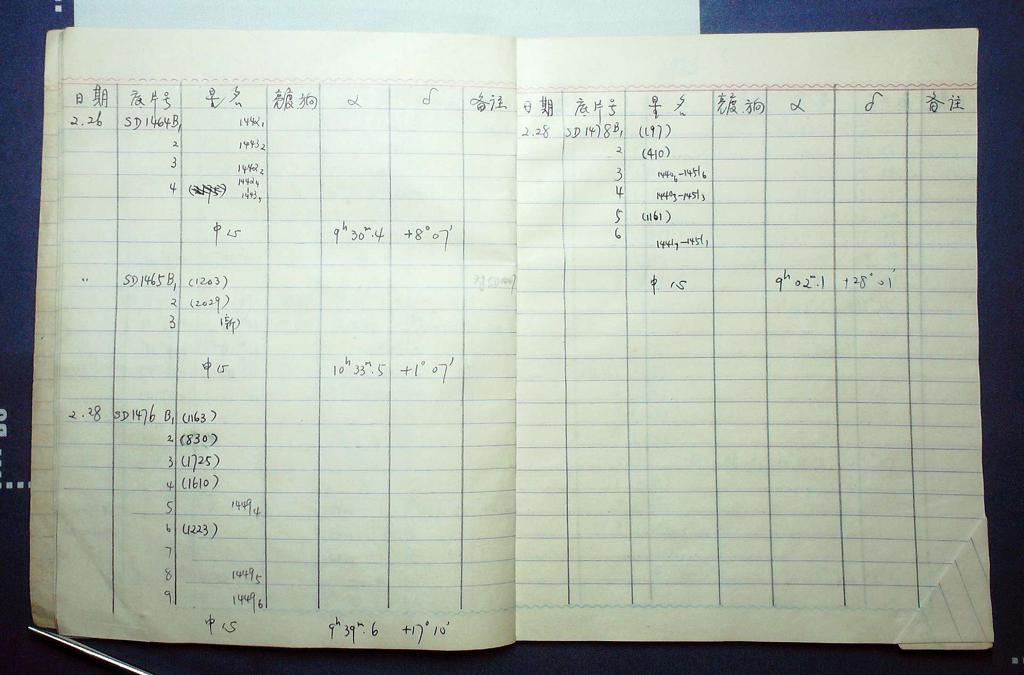 日期 底片号 星名 α δ 备注
2.26 SD1464B1 1442₁
2 1443₂
3 1442₂
4 1442₄
1443₃
中心 9ʰ30ᵐ.4 +8°07′
〃 SD1465B1 (1203)
2 (2029)
3 (新)
中心 10ʰ33ᵐ.5 +1°07′
2.28 SD1476B1 (1163)
2 (830)
3 (1725)
4 (1610)
5 1449₄
6 (1223)
7
8 1449₅
9 1449₆
中心 9ʰ39ᵐ.6 +17°10′
日期 底片号 星名 α δ 备注
2.28 SD1478B1 (197)
2 (410)
3 1440₆—1451₆
4 1440₃—1451₃
5 (1161)
6 1441₉—1451₁
中心 9ʰ02ᵐ.1 +28°01′